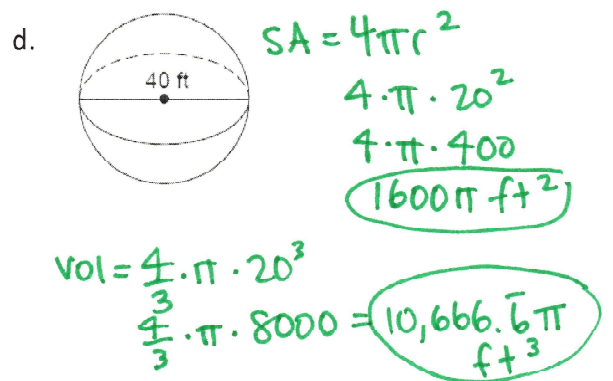 d.
40 ft
SA = 4πr²
4·π·20²
4·π·400
1600π ft²
Vol = 4/3·π·20³
4/3·π·8000 = 10,666.6̅π ft³